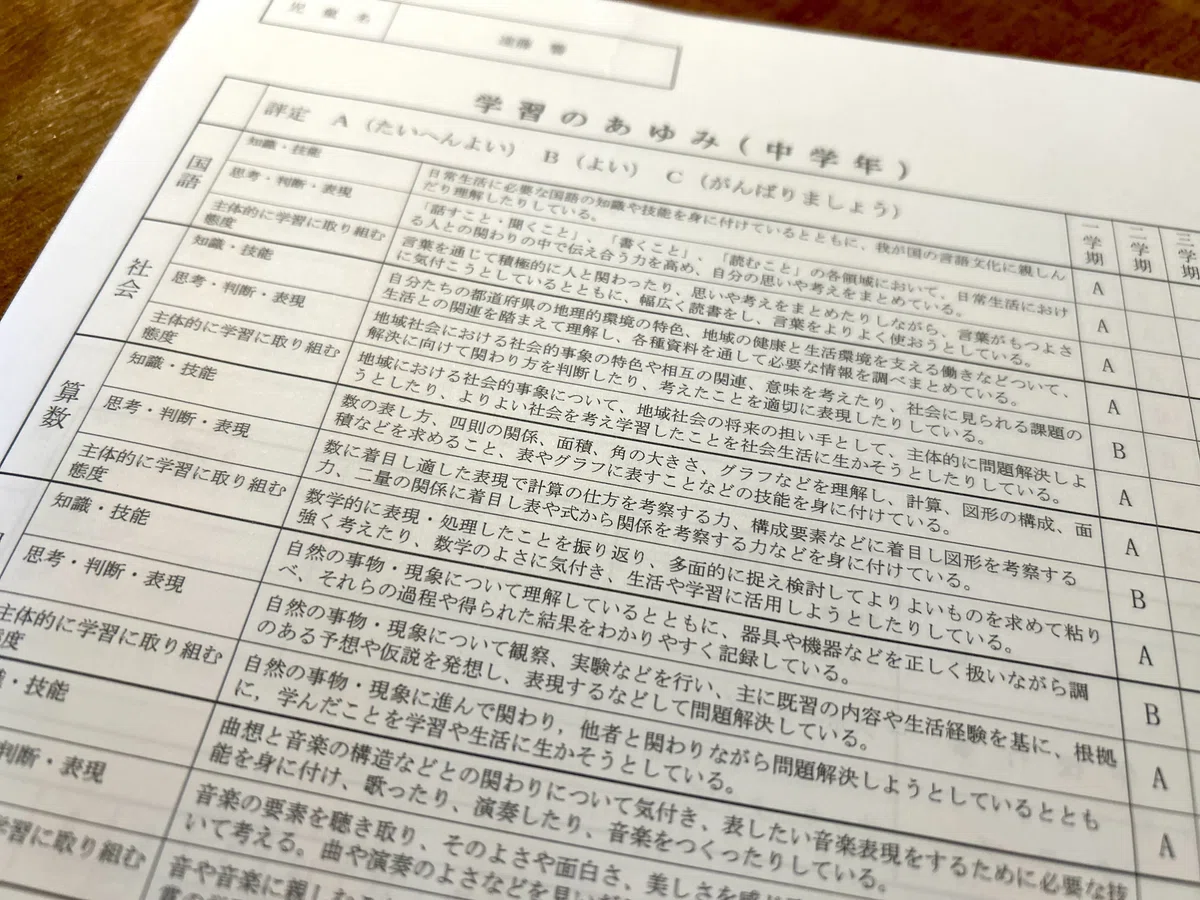 児童名
学習のあゆみ(中学年)
評定 A (たいへんよい) B (よい) C (がんばりましょう)
一学期
二学期
三学期
国語
知識・技能
日常生活に必要な国語の知識や技能を身に付けているとともに、我が国の言語文化に親しん
だり理解したりしている。
A
思考・判断・表現
「話すこと・聞くこと」、「書くこと」、「読むこと」の各領域において、日常生活におけ
る人との関わりの中で伝え合う力を高め、自分の思いや考えをまとめている。
A
主体的に学習に取り組む
態度
言葉を通じて積極的に人と関わったり、思いや考えをまとめたりしながら、言葉がもつよさ
に気付こうとしているとともに、幅広く読書をし、言葉をよりよく使おうとしている。
A
社会
知識・技能
自分たちの都道府県の地理的環境の特色、地域の健康と生活環境を支える働きなどついて、
生活との関連を踏まえて理解し、各種資料を通して必要な情報を調べまとめている。
A
思考・判断・表現
地域社会における社会的事象の特色や相互の関連、意味を考えたり、社会に見られる課題の
解決に向けて関わり方を判断したり、考えたことを適切に表現したりしている。
B
主体的に学習に取り組む
態度
地域における社会的事象について、地域社会の将来の担い手として、主体的に問題解決しよ
うとしたり、よりよい社会を考え学習したことを社会生活に生かそうとしたりしている。
A
算数
知識・技能
数の表し方、四則の関係、面積、角の大きさ、グラフなどを理解し、計算、図形の構成、面
積などを求めること、表やグラフに表すことなどの技能を身に付けている。
A
思考・判断・表現
数に着目し適した表現で計算の仕方を考察する力、構成要素などに着目し図形を考察する
力、二量の関係に着目し表や式から関係を考察する力などを身に付けている。
B
主体的に学習に取り組む
態度
数学的に表現・処理したことを振り返り、多面的に捉え検討してよりよいものを求めて粘り
強く考えたり、数学のよさに気付き、生活や学習に活用しようとしたりしている。
A
知識・技能
自然の事物・現象について理解しているとともに、器具や機器などを正しく扱いながら調
べ、それらの過程や得られた結果をわかりやすく記録している。
B
思考・判断・表現
自然の事物・現象について観察、実験などを行い、主に既習の内容や生活経験を基に、根拠
のある予想や仮説を発想し、表現するなどして問題解決している。
A
主体的に学習に取り組む
態度
自然の事物・現象に進んで関わり，他者と関わりながら問題解決しようとしているととも
に，学んだことを学習や生活に生かそうとしている。
A
・技能
曲想と音楽の構造などとの関わりについて気付き、表したい音楽表現をするために必要な技
能を身に付け、歌ったり、演奏したり、音楽をつくったりしている。
判断・表現
音楽の要素を聴き取り、そのよさや面白さ、美しさを感じ
いて考える。曲や演奏のよさなどを見い
学習に取り組む
音や音楽に親しむ